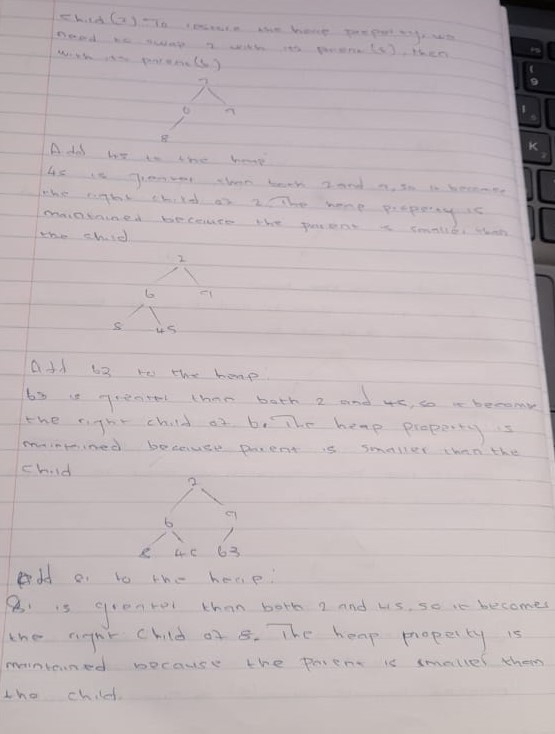 child (2) - To restore the heap property, we
need to swap 2 with its parent (s), then
with its parent (6)
2
6 9
8
Add 45 to the heap:
45 is greater than both 2 and 9, so it becomes
the right child of 2. The heap property is
maintained because the parent is smaller than
the child
2
6 9
8 45
Add 63 to the heap.
63 is greater than both 2 and 45, so it become
the right child of 6. The heap property is
maintained because parent is smaller than the
child
2
6 9
8 45 63
Add 81 to the heap:
81 is greater than both 2 and 45, so it becomes
the right child of 8. The heap property is
maintained because the parent is smaller than
the child.